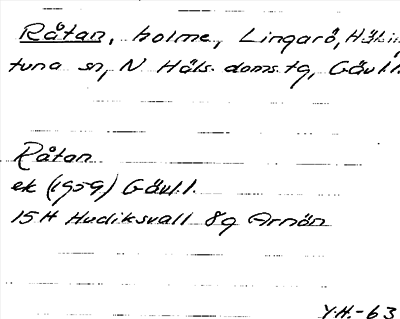 Råtan, holme, Lingarö, Hälsing
tuna sn, N Häls. doms. tg, Gävl.l.
Råtan
ek (1959) Gävl.l.
15H Hudiksvall 8g Arnön
Y.H.-63